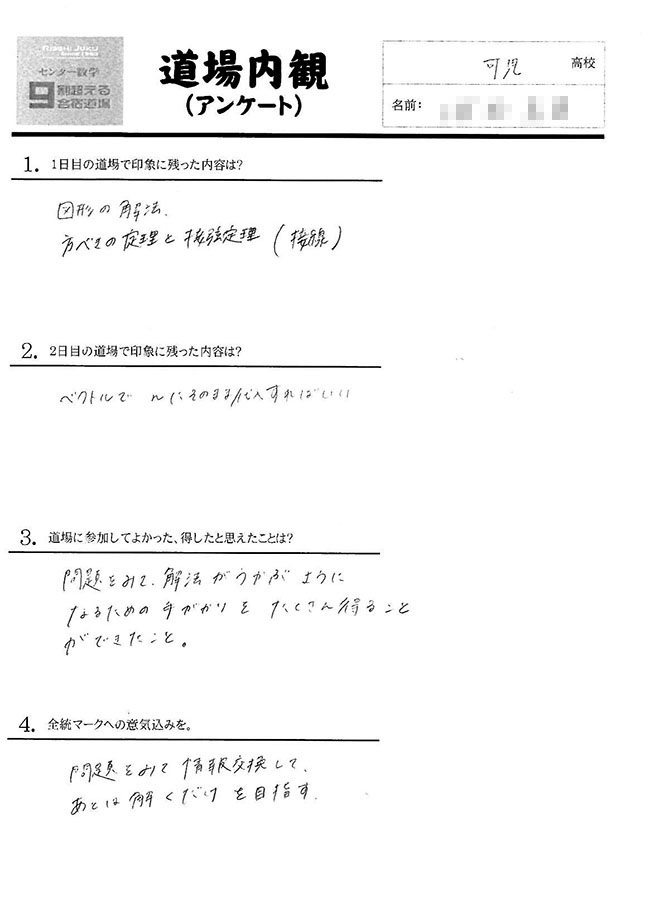 RISSHI JUKU
SINCE 1983
センター数学
9割超える
合宿道場
道場内観
(アンケート)
可児 高校
名前:
1. 1日目の道場で印象に残った内容は?
図形の解法.
方べきの定理と接弦定理 (接線)
2. 2日目の道場で印象に残った内容は?
ベクトルで nにそのまま代入すればいい
3. 道場に参加してよかった、得したと思えたことは?
問題をみて、解法がうかぶように
なるための手がかりをたくさん得ること
ができたこと。
4. 全統マークへの意気込みを。
問題をみて情報交換して、
あとは解くだけを目指す.